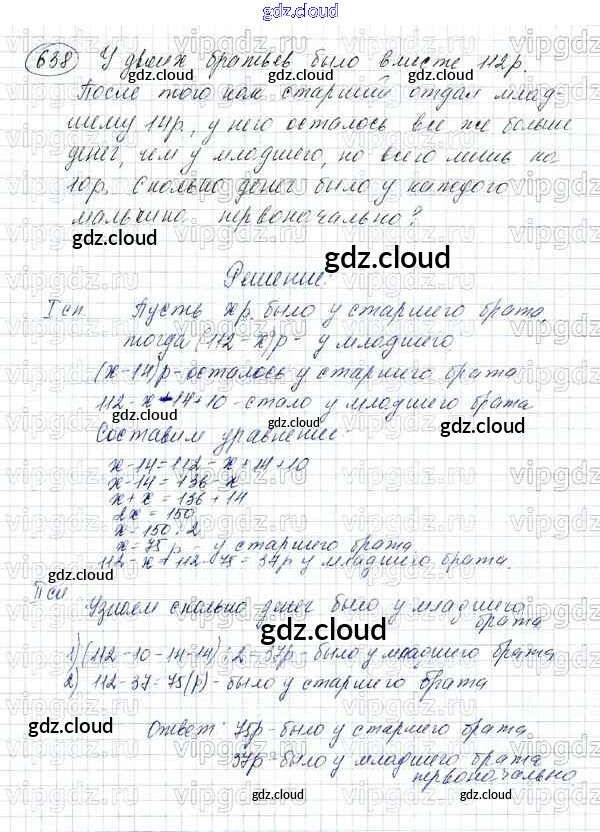 gdz.cloud
638 У двоих братьев было вместе 112р.
После того как старший отдал млад-
шему 14р, у него осталось все же больше
денег, чем у младшего, но всего лишь на
10р. Сколько денег было у каждого
мальчика первоначально?
Решение:
I сп. Пусть х р. было у старшего брата,
тогда (112-х)р - у младшего
(х-14)р - осталось у старшего брата
112-х+14+10 - стало у младшего брата
Составим уравнение:
х-14=112-х+14+10
х-14=136-х
х+х=136+14
2х=150
х=150:2
х=75р у старшего брата
112-х=112-75=37р у младшего брата.
II сп
Узнаем сколько денег было у младшего
брата
1) (112-10-14-14):2=37р - было у младшего брата
2) 112-37=75(р) - было у старшего брата
Ответ: 75р - было у старшего брата
37р - было у младшего брата
первоначально